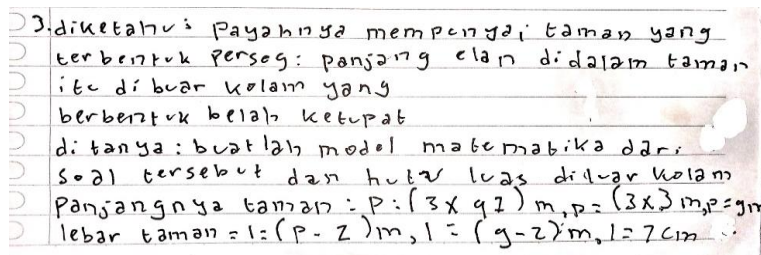 3. diketahui payahnya mempunyai taman yang
terbentuk persegi panjang dan didalam taman
itu di buar kolam yang
berbentuk belah ketupat
di tanya : buatlah model matematika dari
soal tersebut dan luas diluar kolam
Pansangnya taman : p : (3 x
lebar taman = l = (p - 2) m, l = (9 - 2) m, l = 7 cm